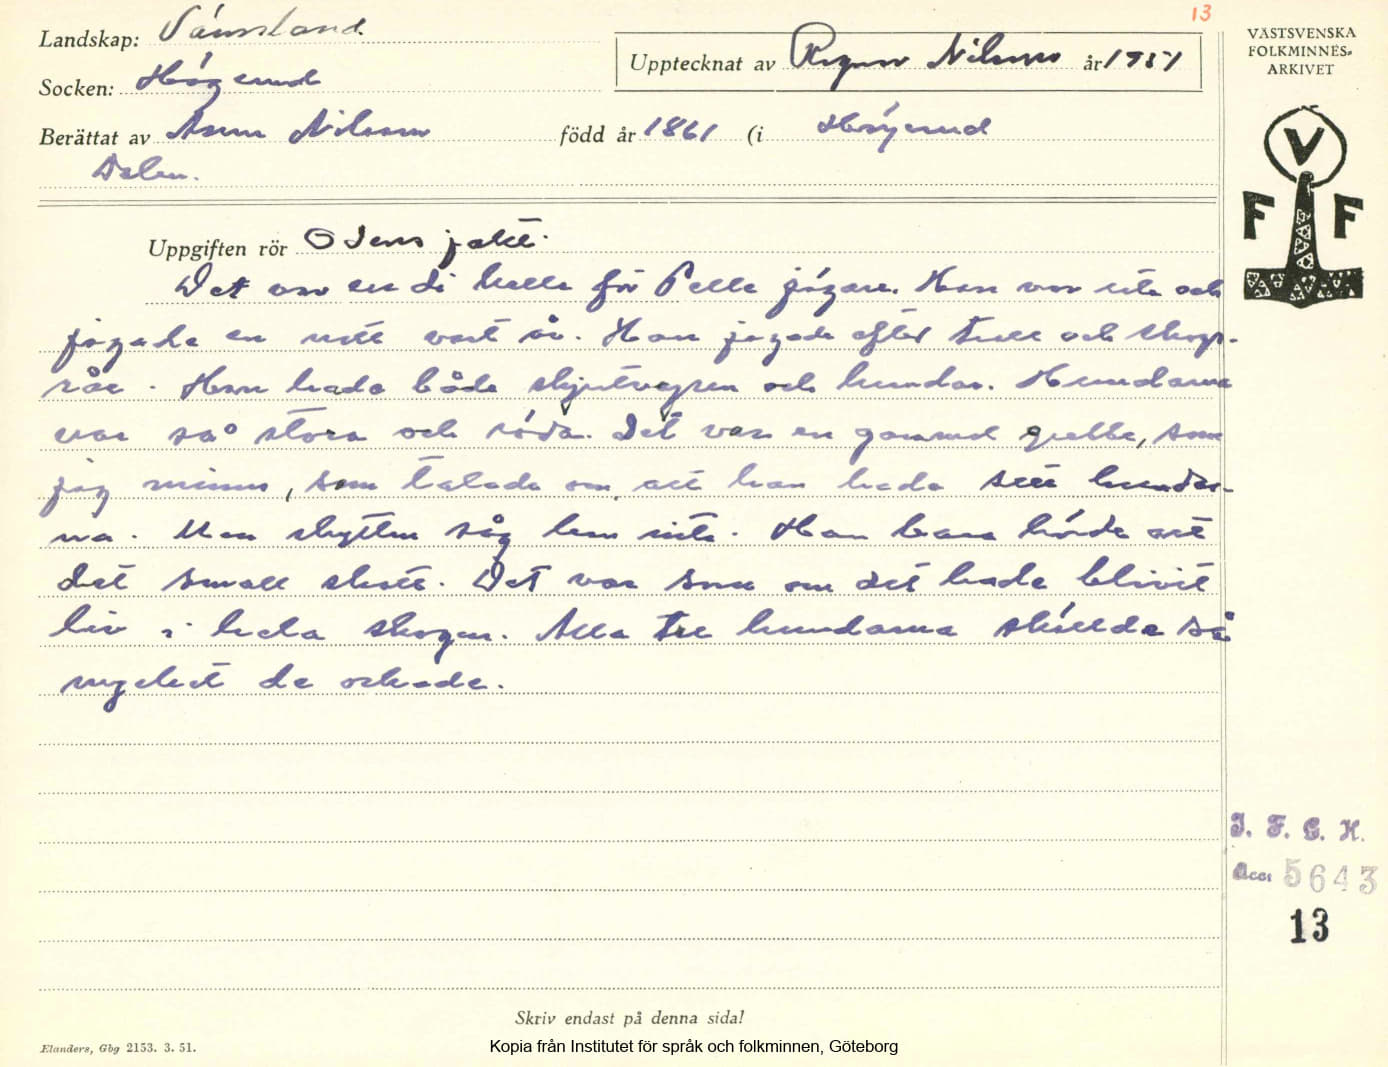 13
Landskap: Värmland
Socken: Högerud
Upptecknat av Ragnar Nilsson år 1951
Berättat av Anna Nilsson född år 1861 (i Högerud
Dalen.
VÄSTSVENSKA
FOLKMINNES-
ARKIVET
V
F F
Uppgiften rör Odens jakt.
Det var en di kalla för Pelle jägare. Han var ute och
jagade en natt vart år. Han jagade efter troll och skogs-
råe. Han hade både skjutvapen och hundar. Hundarna
var så stora och röda. Det var en gammal gubbe, som
jag minns, som talade om att han hade sett hundar-
na. Men skytten såg han inte. Han bara hörde att
det small skott. Det var som om det hade blivit
liv i hela skogen. Alla tre hundarna skällde så
mycket de orkade.
I. F. G. H.
Acc: 5643
13
Skriv endast på denna sida!
Elanders, Gbg 2153. 3. 51.
Kopia från Institutet för språk och folkminnen, Göteborg